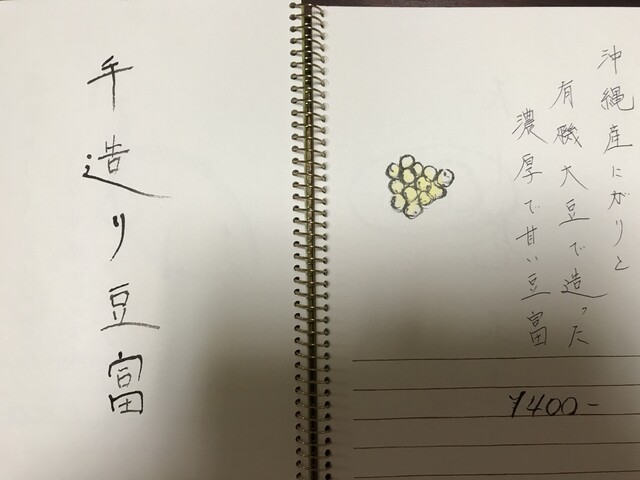 手造り豆富
沖縄産にがりと
有機大豆で造った
濃厚で甘い豆富
¥400-